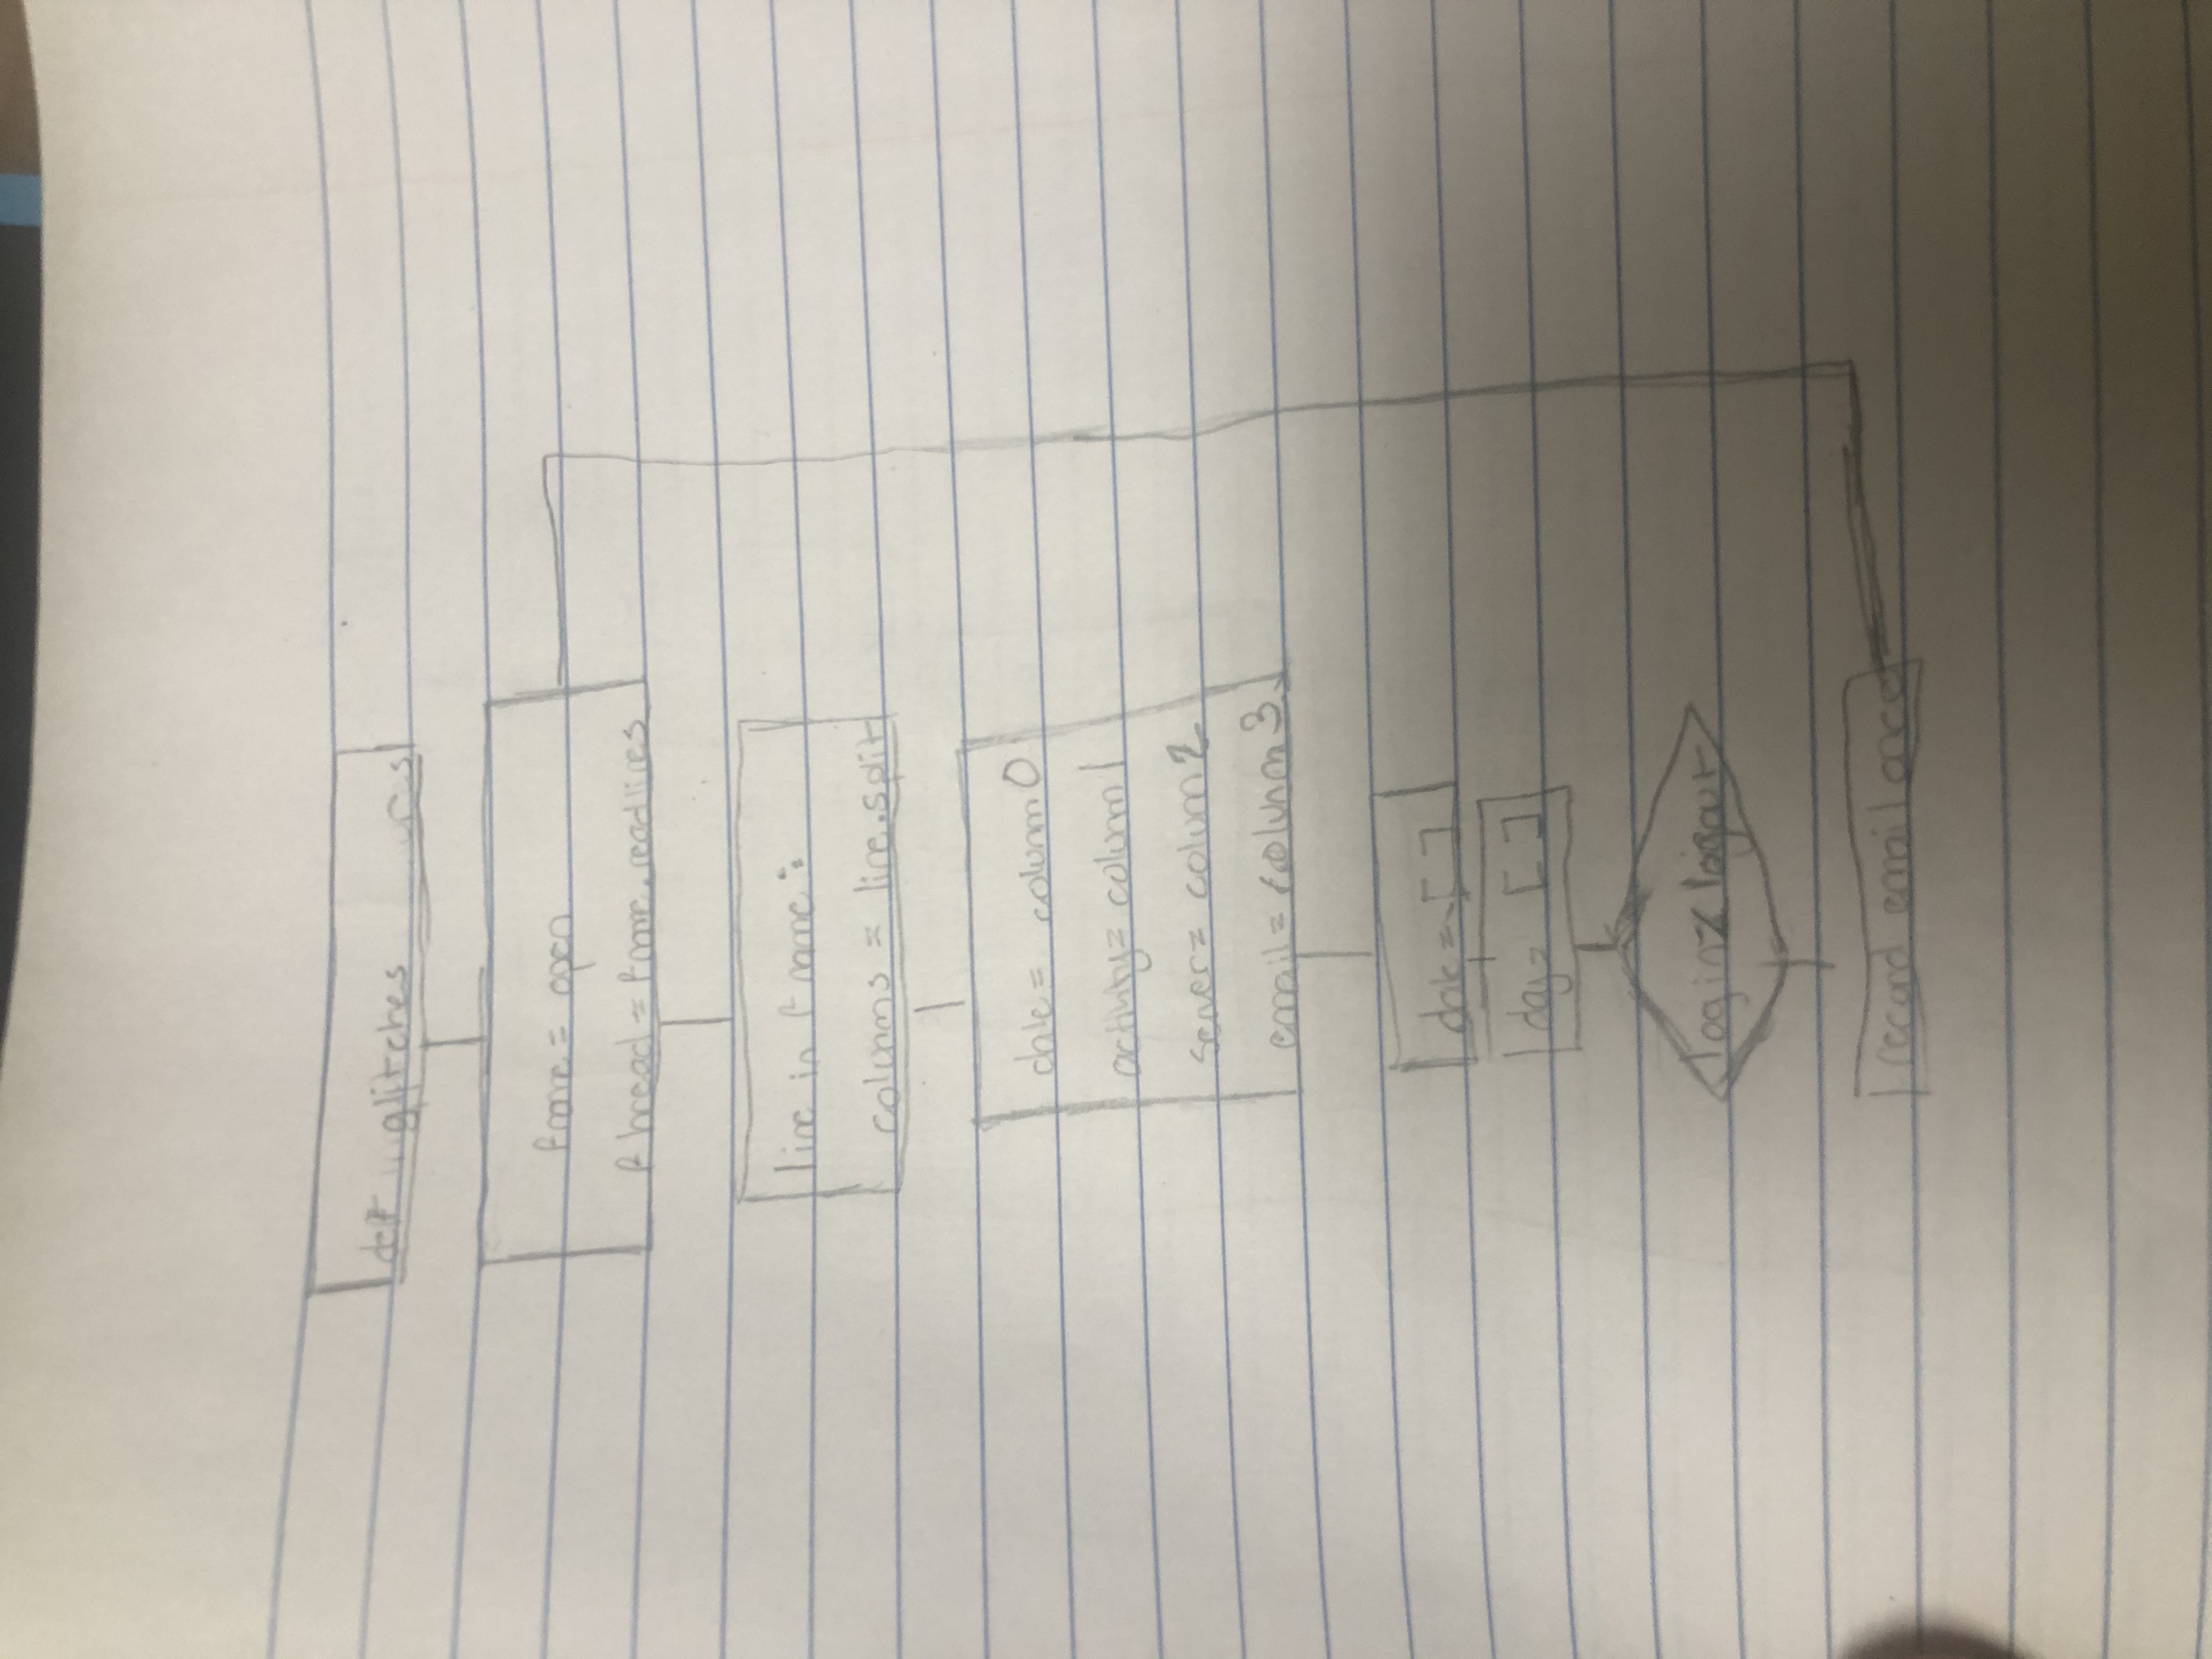 def glitches
fname = open
fhread = fname.readlines
line in fname:
columns = line.split
date = column 0
activity = column 1
server = colum 2
email = column 3
date = [ ]
day = [ ]
login logout
record email once